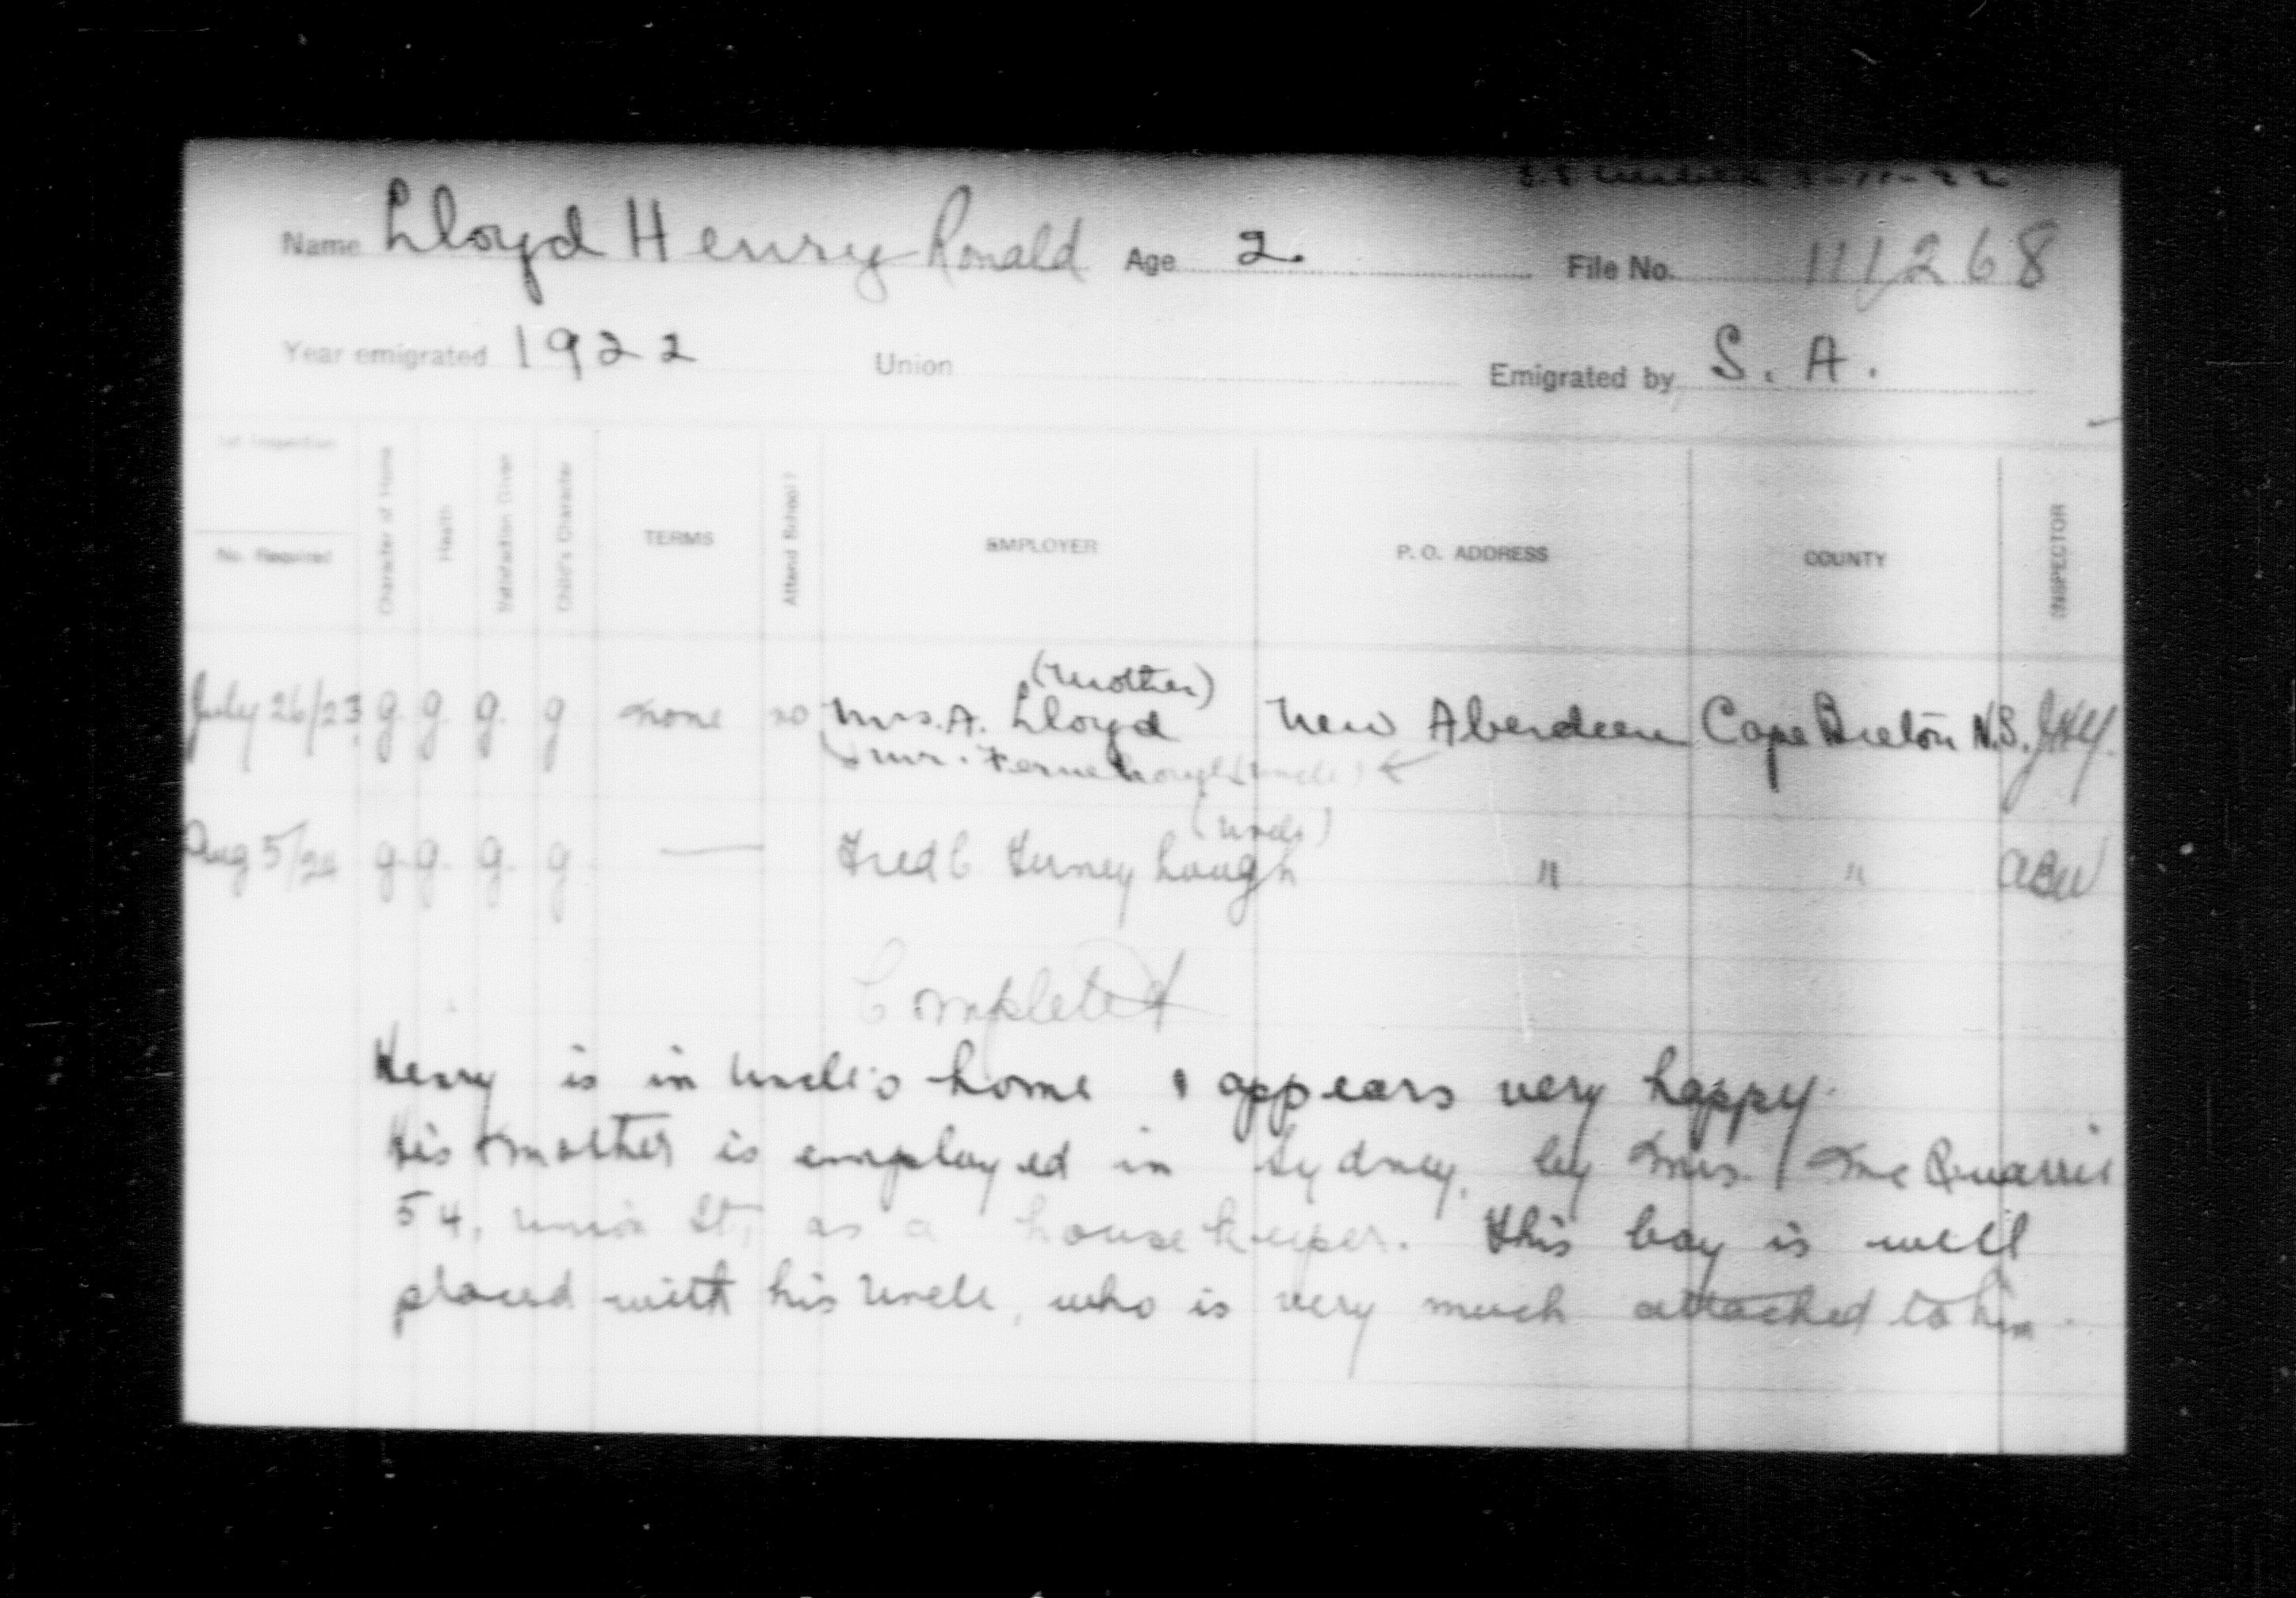 Name Lloyd Henry Ronald Age 2. File No. 111268
Year emigrated 1922 Union Emigrated by S. A.
1st Inspection
No. Required
Character of Home
Health
Satisfaction Given
Child's Character
TERMS
Attend School?
EMPLOYER
P. O. ADDRESS
COUNTY
INSPECTOR
(mother)
July 26/23 g. g. g. g none no Mrs. A. Lloyd New Aberdeen Cape Breton N.S.
Mr. Fernehough (uncle)
(uncle)
Aug 5/ g. g. g. g — Fred C Ferneyhough " " ABW
Completed
Henry is in uncle's home & appears very happy.
His mother is employed in Sydney, by Mrs. McQuarrie
54, Union St, as a housekeeper. This boy is well
placed with his uncle, who is very much attached to him.